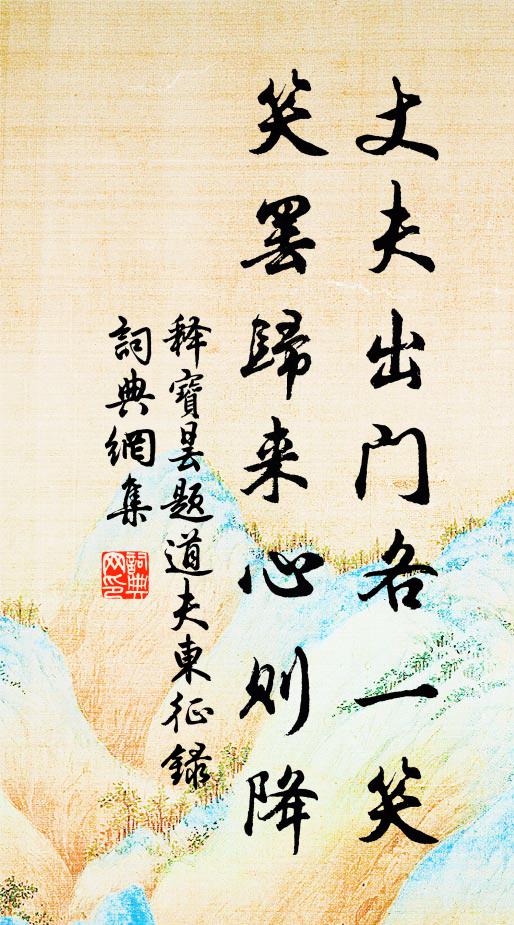 丈夫出门各一笑
笑罢歸来心则降
释寶昙题道夫東征録
詞典網集
詞典网印